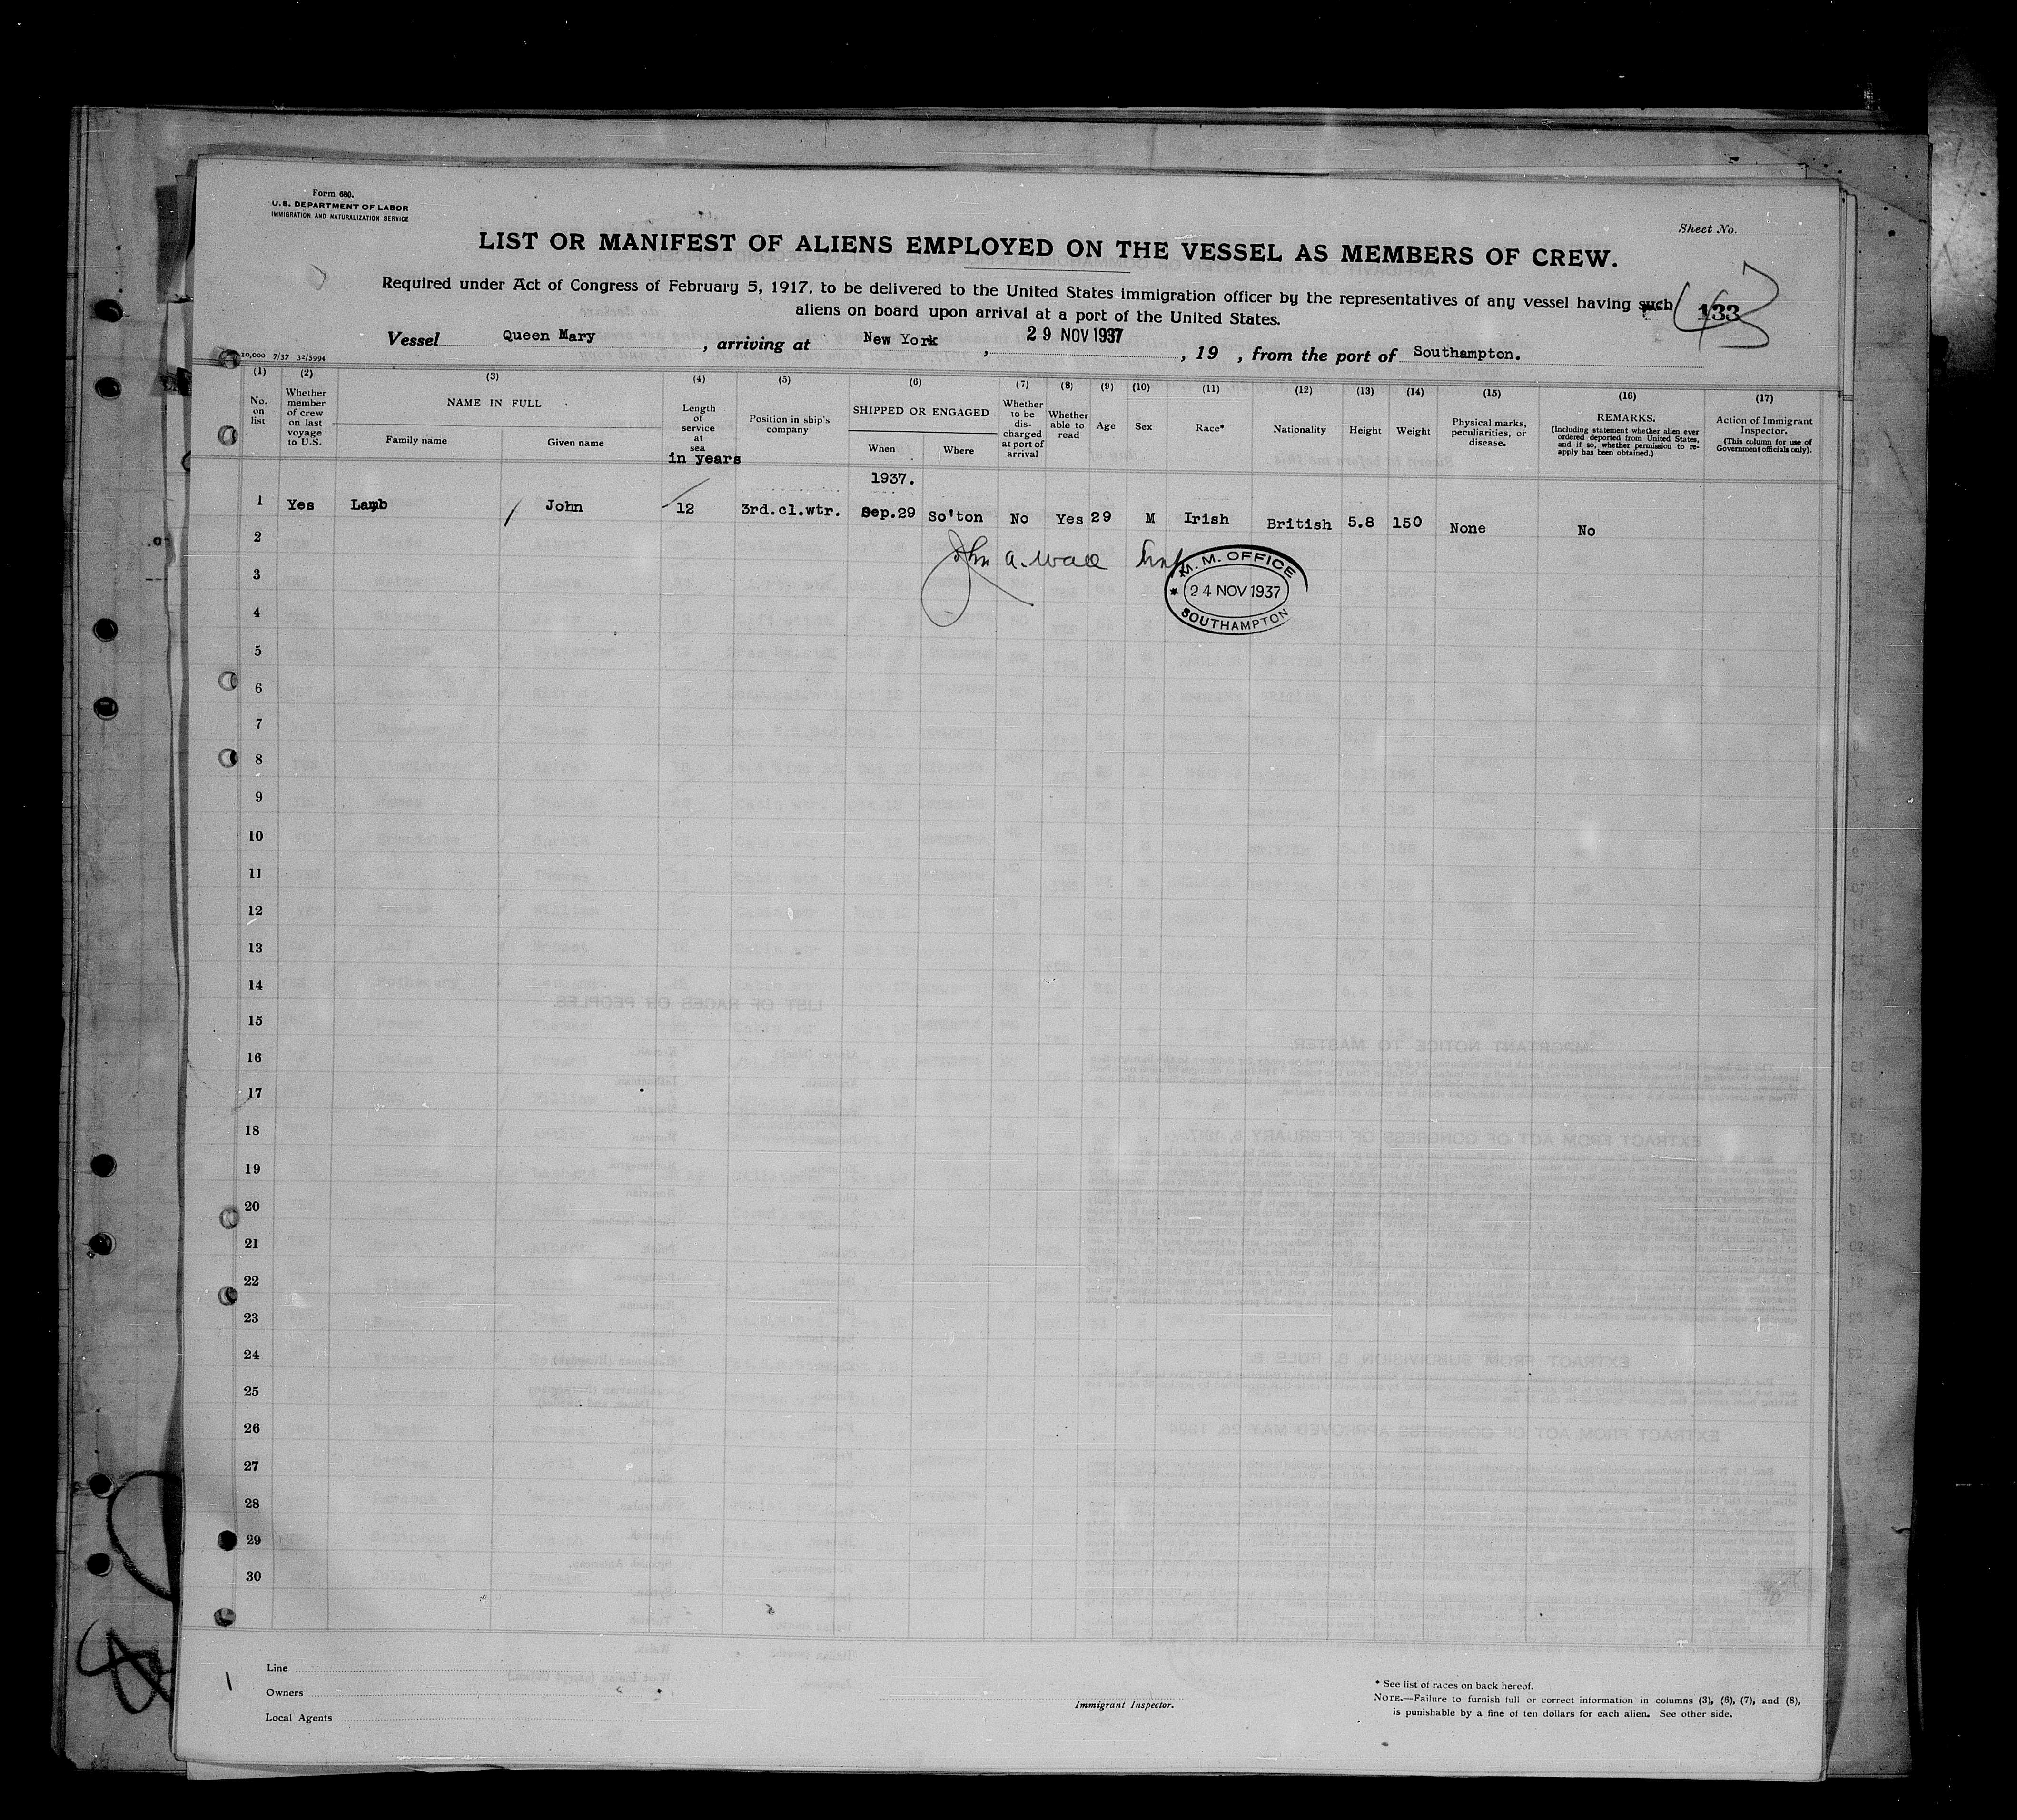 Form 680.
U. S. DEPARTMENT OF LABOR
IMMIGRATION AND NATURALIZATION SERVICE
Sheet No.
LIST OR MANIFEST OF ALIENS EMPLOYED ON THE VESSEL AS MEMBERS OF CREW.
Required under Act of Congress of February 5, 1917, to be delivered to the United States immigration officer by the representatives of any vessel having such
aliens on board upon arrival at a port of the United States.
133
Vessel Queen Mary, arriving at New York, 29 NOV 1937, 19 , from the port of Southampton.
10,000 7/37 32/5994
(1) (2) (3) (4) (5) (6) (7) (8) (9) (10) (11) (12) (13) (14) (15) (16) (17)
No. on list
Whether member of crew on last voyage to U.S.
NAME IN FULL
Family name
Given name
Length of service at sea
in years
Position in ship's company
SHIPPED OR ENGAGED
When
Where
Whether to be discharged at port of arrival
Whether able to read
Age
Sex
Race*
Nationality
Height
Weight
Physical marks, peculiarities, or disease.
REMARKS.
(Including statement whether alien ever ordered deported from United States, and if so, whether permission to re-apply has been obtained.)
Action of Immigrant Inspector.
(This column for use of Government officials only).
1937.
1 Yes Lamb John 12 3rd.cl.wtr. Sep.29 So'ton No Yes 29 M Irish British 5.8 150 None No
2
John A. Wall
M. M. OFFICE
24 NOV 1937
SOUTHAMPTON
3
4
5
6
7
8
9
10
11
12
13
14
15
16
17
18
19
20
21
22
23
24
25
26
27
28
29
30
Line
Owners
Local Agents
Immigrant Inspector.
* See list of races on back hereof.
NOTE.—Failure to furnish full or correct information in columns (3), (6), (7), and (8),
is punishable by a fine of ten dollars for each alien. See other side.